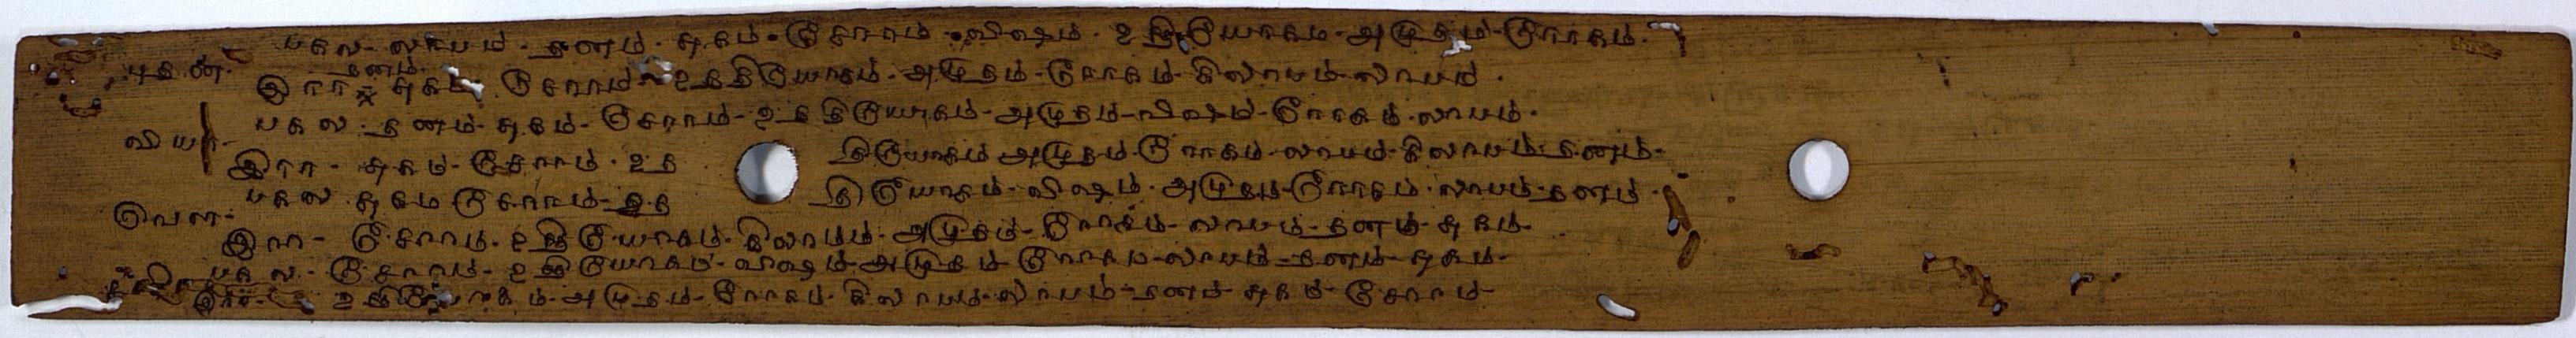 பகல - லாபம் - தனம் - சுகம் - சோரம் - விஷம் - உத்தியோகம் - அமுதம் - ரோகம்.
புதன் - தனம்
இரா - சுகம் - சோரம் - உத்தியோகம் - அமுதம் - ரோகம் - கிலாபம் - லாபம்.
பகல - தனம் - சுகம் - சோரம் - உத்தியோகம் - அமுதம் - விஷம் - ரோகம் - லாபம்.
வியா -
இரா - சுகம் - சோரம் - உத்தியோகம் அமுதம் - ரோகம் - லாபம் - கிலாபம் - தனம் -
பகல - சுகம சோரம் - உத்தியோகம் - விஷம் - அமுதம் - ரோகம் - லாபம் - தனம் -
வெள -
இரா - சோரம் - உத்தியோகம் - கிலாபம் - அமுதம் - ரோகம் - லாபம் - தனம் - சுகம் -
பகல - சோரம் - உத்தியோகம் - விஷம் - அமுதம் - ரோகம் - லாபம் - தனம் - சுகம் -
இரா - உத்தியோகம் - அமுதம் - ரோகம் - கிலாபம் - லாபம் - தனம் - சுகம் - சோரம் -